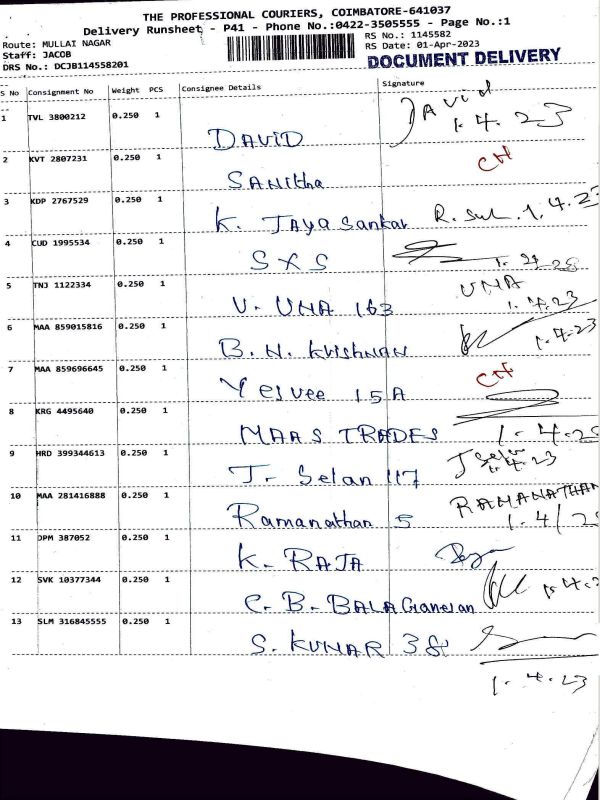 THE PROFESSIONAL COURIERS, COIMBATORE-641037
Delivery Runsheet - P41 - Phone No.:0422-3505555 - Page No.:1
Route: MULLAI NAGAR
RS No.: 1145582
Staff: JACOB
RS Date: 01-Apr-2023
DRS No.: DCJB114558201
DOCUMENT DELIVERY
S No Consignment No Weight PCS Consignee Details Signature
1 TVL 3800212 0.250 1 David
1.4.23
DAVID
2 KVT 2807231 0.250 1 CH
SANitha
3 KDP 2767529 0.250 1
K. JAYA Sankar 1.4.23
4 CUD 1995534 0.250 1
SXS
5 TNJ 1122334 0.250 1 UNA
V. UNA 163 1.4.23
6 MAA 859015816 0.250 1 1.4.23
B. N. KriSHNAN
7 MAA 859696645 0.250 1 CH
Yesvee 15A
8 KRG 4495640 0.250 1
MAAS TRADES
9 HRD 399344613 0.250 1
1.4.23
T. Selan 117
10 MAA 281416888 0.250 1 RAMANATHAN
Ramanathan 5
11 DPM 387052 0.250 1
K. RAJA
12 SVK 10377344 0.250 1
C. B. BALA Ganesan
13 SLM 316845555 0.250 1
S. KUNAR 38
1.4.23